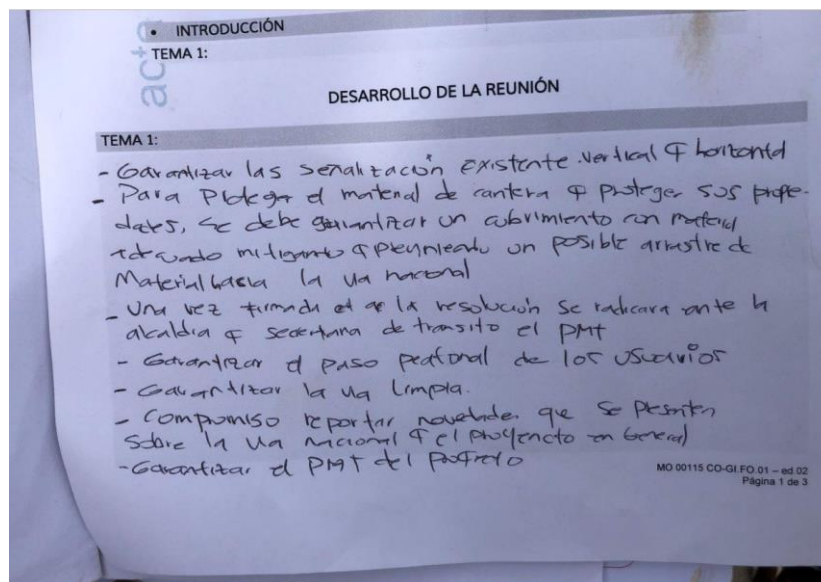 acta
• INTRODUCCIÓN
TEMA 1:
DESARROLLO DE LA REUNIÓN
TEMA 1:
- Garantizar las señalización existente vertical y horizontal
- Para proteger el material de cantera y proteger sus propie-
dades, se debe garantizar un cubrimiento con material
adecuado mitigando y previniendo un posible arrastre de
Material hacia la via nacional
- Una vez firmada la resolución se radicara ante la
alcaldia y secretaria de transito el PMT
- Garantizar el paso peatonal de los usuarios
- Garantizar la via limpia.
- Compromiso reportar novedades que se presenten
sobre la via nacional y el proyencto en General
- Garantizar el PMT del proyecto
MO 00115 CO-GI.FO.01 – ed.02
Página 1 de 3